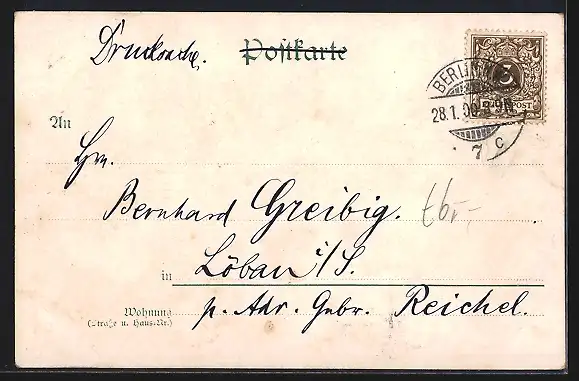 Drucksache. Postkarte
BERLIN
28.1.00. 8-9N.
7 c
3
REICHSPOST
An
Hrn.
Bernhard Greibig.
in Löbau i/S.
Wohnung
(Straße u. Haus-Nr.)
p. Adr. Gebr. Reichel.